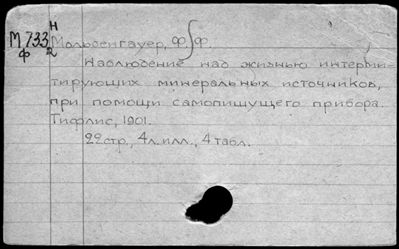 Н
М 733 Мольденгауер, Ф. Ф.
Ф 2
Наблюдение над жизнью интерми-
тирующих минеральных источников,
при помощи самопишущего прибора.
Тифлис, 1901.
22 стр., 4 л. илл., 4 табл.